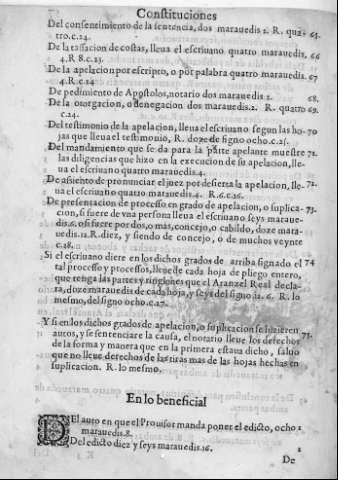 Constituciones
Del consentimiento de la sentencia, dos marauedis 2. R. qua- 65.
tro. c. 24.
De la tassacion de costas, lleua el escriuano quatro marauedis. 66
4. R 8. c. 23.
De la apelacion por escripto, o por palabra quatro marauedis. 67
4. R. c 24
De pedimiento de Apostolos, notario dos marauedis 2. 68.
De la otorgacion, o denegacion dos marauedis. 2. R. quatro 69.
c. 24.
Del testimonio de la apalacion, lleua el escriuano segun las ho- 70
jas que lleua el testimonio, R. doze de signo ocho. c. 25.
Del mandamiento que se da para la parte apelante muestre 71.
las diligencias que hizo en la execucion de su apelacion, lle-
ua el escriuano quatro marauedis 4.
De asiento de pronunciar el juez por desierta la apelacion, lle- 72.
ua el escriuano quatro marauedis. 4. R. 6. c. 26.
De presentacion de processo en grado de apelacion, o suplica- 73.
cion, si fuere de vna persona lleua el escriuano seys maraue-
dis. 6. o si fuere por dos, o mas, concejo, o cabildo, doze mara-
uedis. 12. R. diez, y siendo de concejo, o de muchos veynte
c. 28.
Si el escriuano diere en los dichos grados de arriba signado el 74
tal processo y processos, lleue de cada hoja de pliego entero,
que tenga las partes y ringlones que el Aranzel Real decla-
ra, doze marauedis de cada hoja, y seys del signo 12. 6. R. lo
mesmo, del signo ocho. c. 27.
Y si en los dichos grados de apelacion, o suplicacion se hizieren 75.
autos, y se sentenciare la causa, el notario lleue los derechos
de la forma y manera que en la primera estaua dicho, saluo
que no lleue derechos de las tiras mas de las hojas hechas en
suplicacion. R. lo mesmo.
En lo beneficial
DEl auto en que el Prouisor manda poner el edicto, ocho 1
marauedis. 8.
Del edicto diez y seys marauedis. 16. 2
De